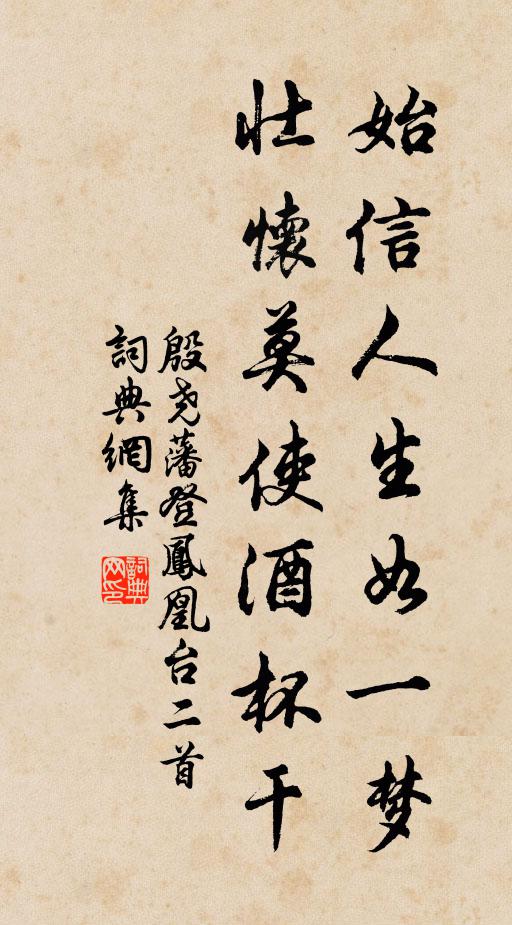 始信人生如一梦
壮懷莫使酒杯干
殷尧藩登鳳凰台二首
詞典網集
詞典网印